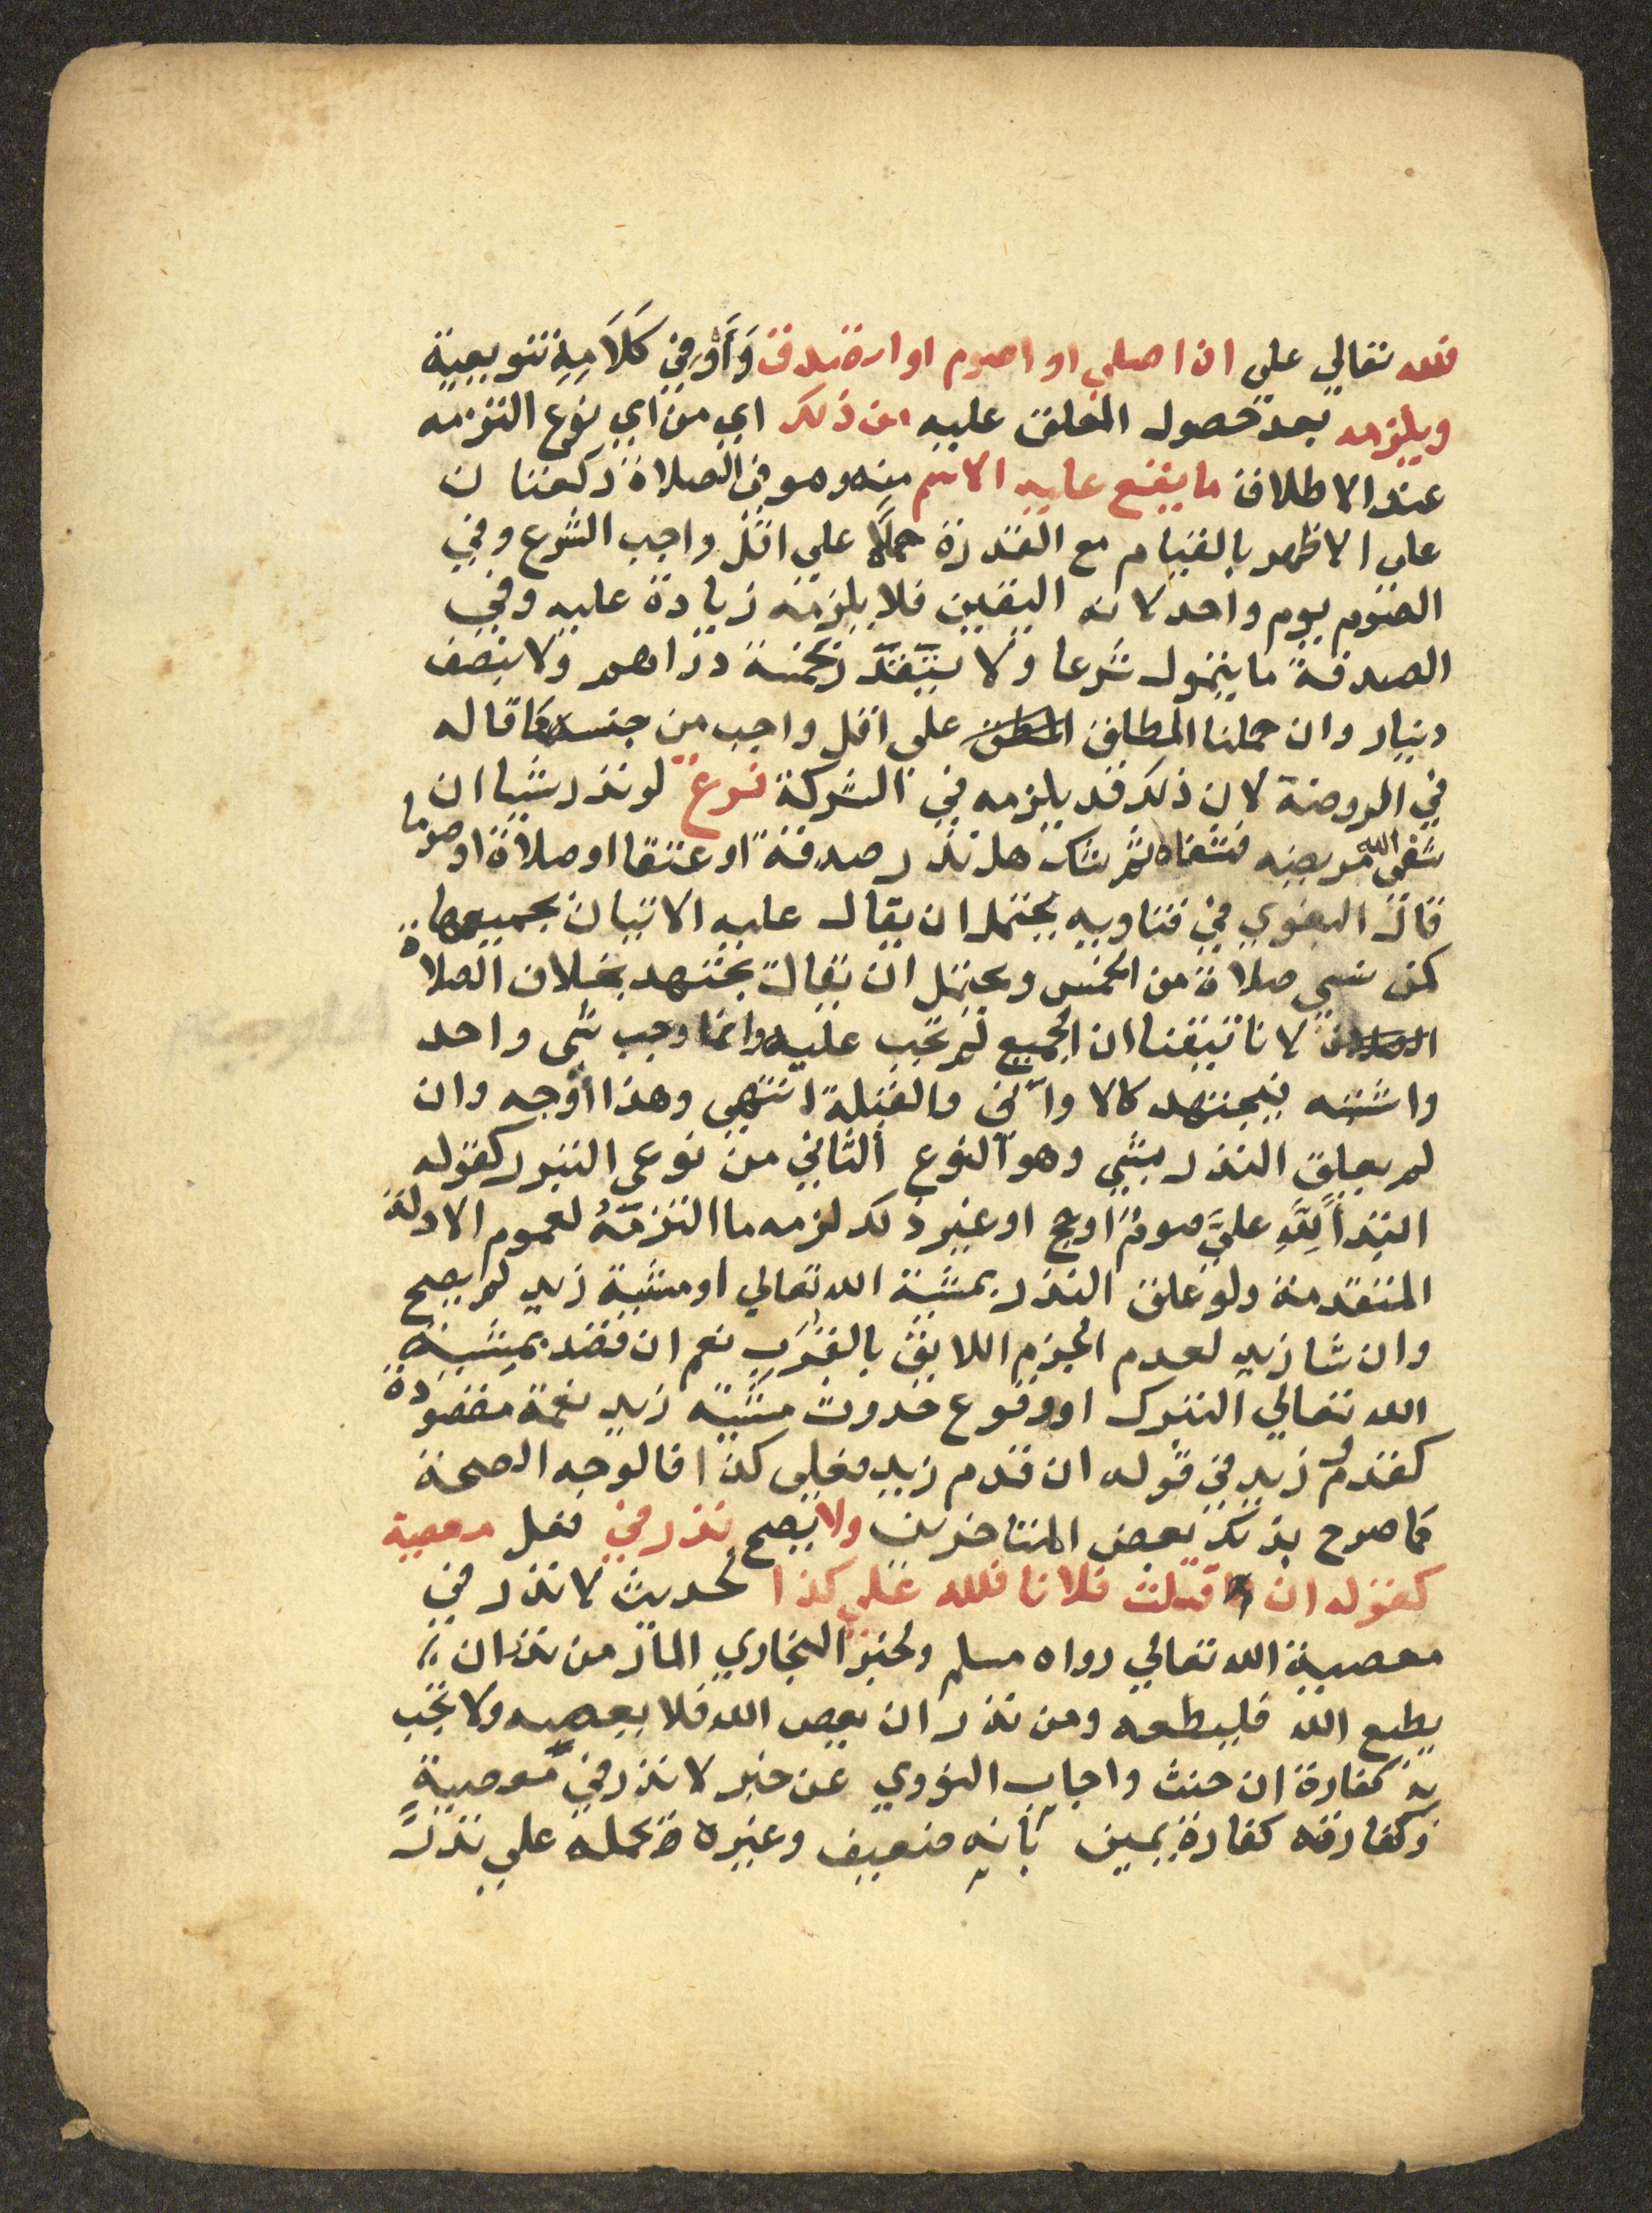 فلله تعالي علي ان اصلي او اصوم او اتصدق وَأَوْ فِي كَلَامِهِ تنويعية
ويلزمه بعد حصول المعلق عليه من ذلك اي من اي نوع التزمه
عند الاطلاق ما يقع عليه الاسم منه وهو في الصلاة ركعتان
علي الاظهر بالقيام مع القدرة حملًا علي اقل واجب الشرع وفي
الصوم يوم واحد لانه اليقين فلا يلزمه زيادة عليه وفي
الصدقة ما يتمول شرعا ولا يتقدر بخمسة دراهم ولا بنصف
دينار وان حملنا المطلق علي اقل واجب من جنسه كما قاله
في الروضة لان ذلك قد يلزمه في الشركة فرع لو نذر شيا ان
شفى الله مريضه فشفاه ثم شك هل نذر صدقة او عتقا او صلاة او صوما
قال البغوي في فتاويه يحتمل ان يقال عليه الاتيان بجميعها
كمن نسي صلاة من الخمس ويحتمل ان يقال يجتهد بخلاف الصلاة
لانا تيقنا ان الجميع لم تجب عليه وانما وجب شي واحد
واشتبه فيجتهد كالاواني والقبلة انتهى وهذا اوجه وان
لم يعلق النذر بشي وهو النوع الثاني من نوعي التبرر كقوله
ابتدأ لِلَّهِ عليَّ صوم او حج او غير ذلك لزمه ما التزمَهُ لعموم الادلة
المتقدمة ولو علق النذر بمشية الله تعالي او مشية زيد لم يصح
وان شا زيد لعدم الجزم اللايق بالقُرَب نعم ان قصد بمشية
الله تعالي التبرك او وقوع حدوث مشية زيد نعمة مقصودة
كقدوم زيد في قوله ان قدم زيد فعلي كذا فالوجه الصحة
كما صرح بذلك بعض المتاخرين ولا يصح نذر في فعل معصية
كقوله ان قتلت فلانا فلله علي كذا لحديث لا نذر في
معصية الله تعالي رواه مسلم ولخبر البخاري المار من نذر ان
يطيع الله فليطعه ومن نذر ان يعصي الله فلا يعصيه ولا تجب
به كفارة ان حنث واجاب النووي عن خبر لا نذر في معصية
وكفارته كفارة يمين بأنه ضعيف وغيره بحمله علي نذر